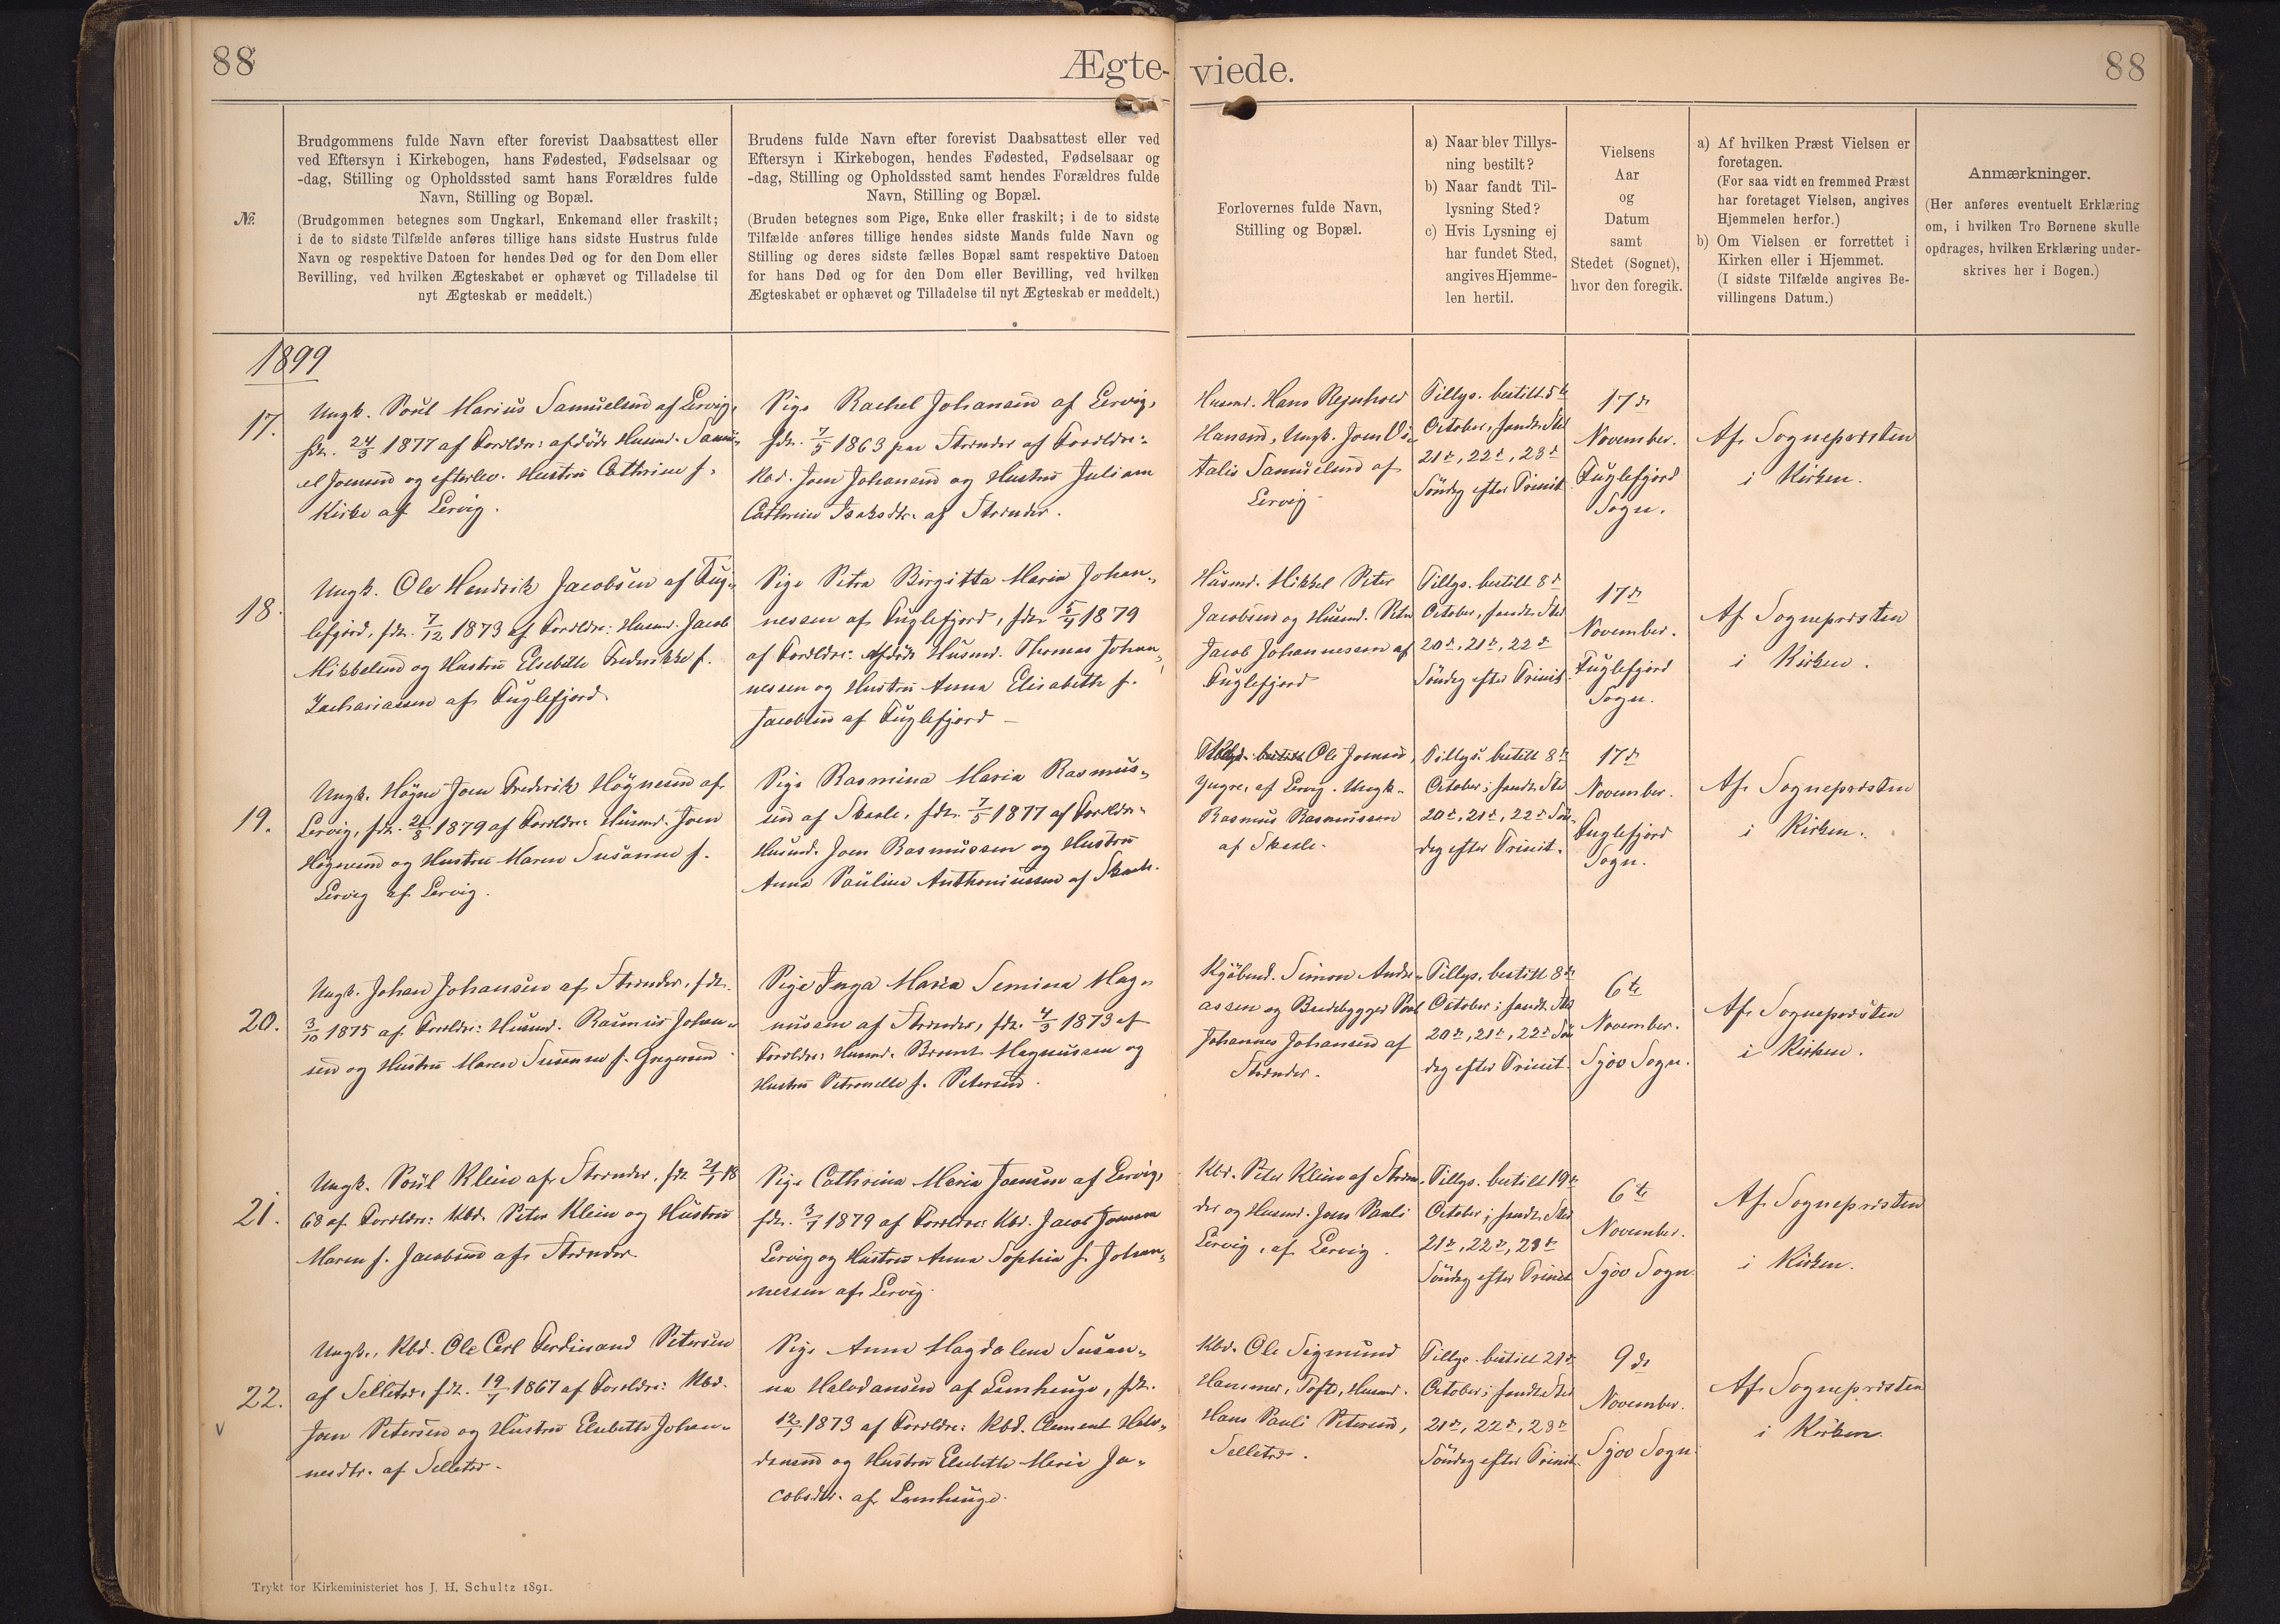 88
Ægte-
viede.
88
No.
Brudgommens fulde Navn efter forevist Daabsattest eller
ved Eftersyn i Kirkebogen, hans Fødested, Fødselsaar og
-dag, Stilling og Opholdssted samt hans Forældres fulde
Navn, Stilling og Bopæl.
(Brudgommen betegnes som Ungkarl, Enkemand eller fraskilt;
i de to sidste Tilfælde anføres tillige hans sidste Hustrus fulde
Navn og respektive Datoen for hendes Død og for den Dom eller
Bevilling, ved hvilken Ægteskabet er ophævet og Tilladelse til
nyt Ægteskab er meddelt.)
Brudens fulde Navn efter forevist Daabsattest eller ved
Eftersyn i Kirkebogen, hendes Fødested, Fødselsaar og
-dag, Stilling og Opholdssted samt hendes Forældres fulde
Navn, Stilling og Bopæl.
(Bruden betegnes som Pige, Enke eller fraskilt; i de to sidste
Tilfælde anføres tillige hendes sidste Mands fulde Navn og
Stilling og deres sidste fælles Bopæl samt respektive Datoen
for hans Død og for den Dom eller Bevilling, ved hvilken
Ægteskabet er ophævet og Tilladelse til nyt Ægteskab er meddelt.)
Forlovernes fulde Navn,
Stilling og Bopæl.
a) Naar blev Tillys-
ning bestilt?
b) Naar fandt Til-
lysning Sted?
c) Hvis Lysning ej
har fundet Sted,
angives Hjemme-
len hertil.
Vielsens
Aar
og
Datum
samt
Stedet (Sognet),
hvor den foregik.
a) Af hvilken Præst Vielsen er
foretagen.
(For saa vidt en fremmed Præst
har foretaget Vielsen, angives
Hjemmelen herfor.)
b) Om Vielsen er forrettet i
Kirken eller i Hjemmet.
(I sidste Tilfælde angives Be-
villingens Datum.)
Anmærkninger.
(Her anføres eventuelt Erklæring
om, i hvilken Tro Børnene skulle
opdrages, hvilken Erklæring under-
skrives her i Bogen.)
1899
17.
Ungk. Poul Marius Samuelsen af Lervig,
fdt. 24/5 1877 af Forældre: afdöde Husmd. Samu-
el Joensen og efterlev. Hustru Cathrine f.
Kirke af Lervig.
Pige Rachel Johansen af Lervig,
fdt. 7/5 1863 paa Strænder af Forældre:
Kbd. Joen Johansen og Hustru Juliane
Cathrine Isaksdtr. af Strænder.
Husmd. Hans Rejnhold
Hansen, Ungk. Joen Vi-
talis Samuelsen af
Lervig
Tillys. bestilt 5te
October, fandt Sted
21de, 22de, 23de
Söndag efter Trinit.
17de
November.
Fuglefjord
Sogn.
Af Sognepræsten
i Kirken.
18.
Ungk. Ole Hendrik Jacobsen af Fug-
lefjord, fdt. 7/12 1873 af Forældre: Husmd. Jacob
Mikkelsen og Hustru Elsebeth Frederikke f.
Zachariassen af Fuglefjord.
Pige Petra Birgitta Maria Johan-
nessen af Fuglefjord, fdt. 5/4 1879
af Forældre: Afdöde Husmd. Thomas Johan-
nessen og Hustru Anna Elisabeth f.
Jacobsen af Fuglefjord
Husmd. Mikkel Peter
Jacobsen og Husmd. Peter
Jacob Johannessen af
Fuglefjord
Tillys. bestilt 8de
October, fandt Sted
20de, 21de, 22de
Söndag efter Trinit.
17de
November.
Fuglefjord
Sogn.
Af Sognepræsten
i Kirken.
19.
Ungk. Högne Joen Frederik Högnesen af
Lervig, fdt. 21/5 1879 af Forældre: Husmd. Joen
Högnesen og Hustru Maren Susanne f.
Lervig af Lervig.
Pige Rasmina Maria Rasmus-
sen af Skaale, fdt. 7/5 1877 af Forældre:
Husmd. Joen Rasmussen og Hustru
Anna Pauline Anthoniussen af Skaale.
Ole Joensen,
Yngre, af Lervig. Ungk.
Rasmus Rasmussen
af Skaale.
Tillys. bestilt 8de
October; fandt Sted
20de, 21de, 22de Sön-
dag efter Trinit.
17de
November.
Fuglefjord
Sogn.
Af Sognepræsten
i Kirken.
20.
Ungk. Johan Johansen af Strænder, fdt.
3/10 1875 af Forældre: Husmd. Rasmus Johan-
sen og Hustru Maren Susanne f. Gregersen
Pige Inga Maria Semina Mag-
nussen af Strænder, fdt. 4/3 1873 af
Forældre: Husmd. Magnussen og
Hustru Petronelle f. Petersen.
Kjöbmd. Simon Andre-
assen og Baadebygger Poul
Johannes Johansen af
Strænder.
Tillys. bestilt 8de
October; fandt Sted
20de, 21de, 22de Sön
dag efter Trinit.
6te
November.
Sjov Sogn.
Af Sognepræsten
i Kirken.
21.
Ungk. Poul Klein af Strænder, fdt. 21/1 18
68 af Forældre: Kbd. Peter Klein og Hustru
Maren f. Jacobsen af Strænder
Pige Cathrina Maria Joensen af Lervig,
fdt. 3/1 1879 af Forældre: Kbd. Jacob Joensen
Lervig og Hustru Anna Sophia f. Johan-
nessen af Lervig.
Kbd. Peter Klein af Stræn-
der og Husmd. Joen Pauli
Lervig, af Lervig.
Tillys. bestilt 19de
October; fandt Sted
21de, 22de, 23de
Söndag efter Trinit.
6te
November.
Sjov Sogn.
Af Sognepræsten
i Kirken.
22.
Ungk., Kbd. Ole Carl Ferdinand Petersen
af Selletræ, fdt. 19/1 1867 af Forældre: Kbd.
Joen Petersen og Hustru Elsebeth Johan-
nesdtr. af Selletræ.
Pige Anna Magdalena Susan-
na Halvdansen af Lamhauge, fdt.
12/1 1873 af Forældre: Kbd. Clement Halv-
dansen og Hustru Elsebeth Maria Ja-
cobsdtr. af Lamhauge.
Kbd. Ole Sigmund
Hammer, Toft, Husmd.
Hans Pauli Petersen,
Selletræ.
Tillys. bestilt 21de
October; fandt Sted
21de, 22de, 23de
Söndag efter Trinit.
9de
November.
Sjov Sogn.
Af Sognepræsten
i Kirken.
Trykt for Kirkeministeriet hos J. H. Schultz 1891.